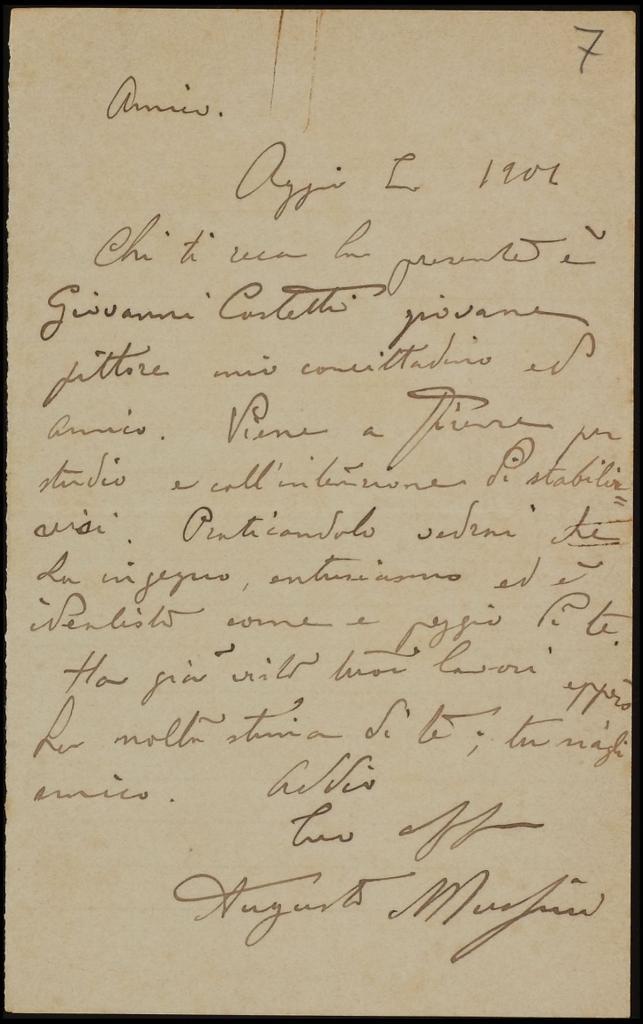 7
Amico.
Oggi 1901
Chi ti reca la presente è
Giovanni Costetti giovane
pittore mio concittadino ed
amico. Viene a Firenze per
studio e coll'intenzione di stabilir=
visi. Praticandolo vedrai che
ha ingegno, entusiasmo ed è
idealista come e peggio di te.
Ha già visto tuoi lavori epperò
ha molta stima di te; tu siagli
amico. Addio
tuo aff
Augusto Mussini